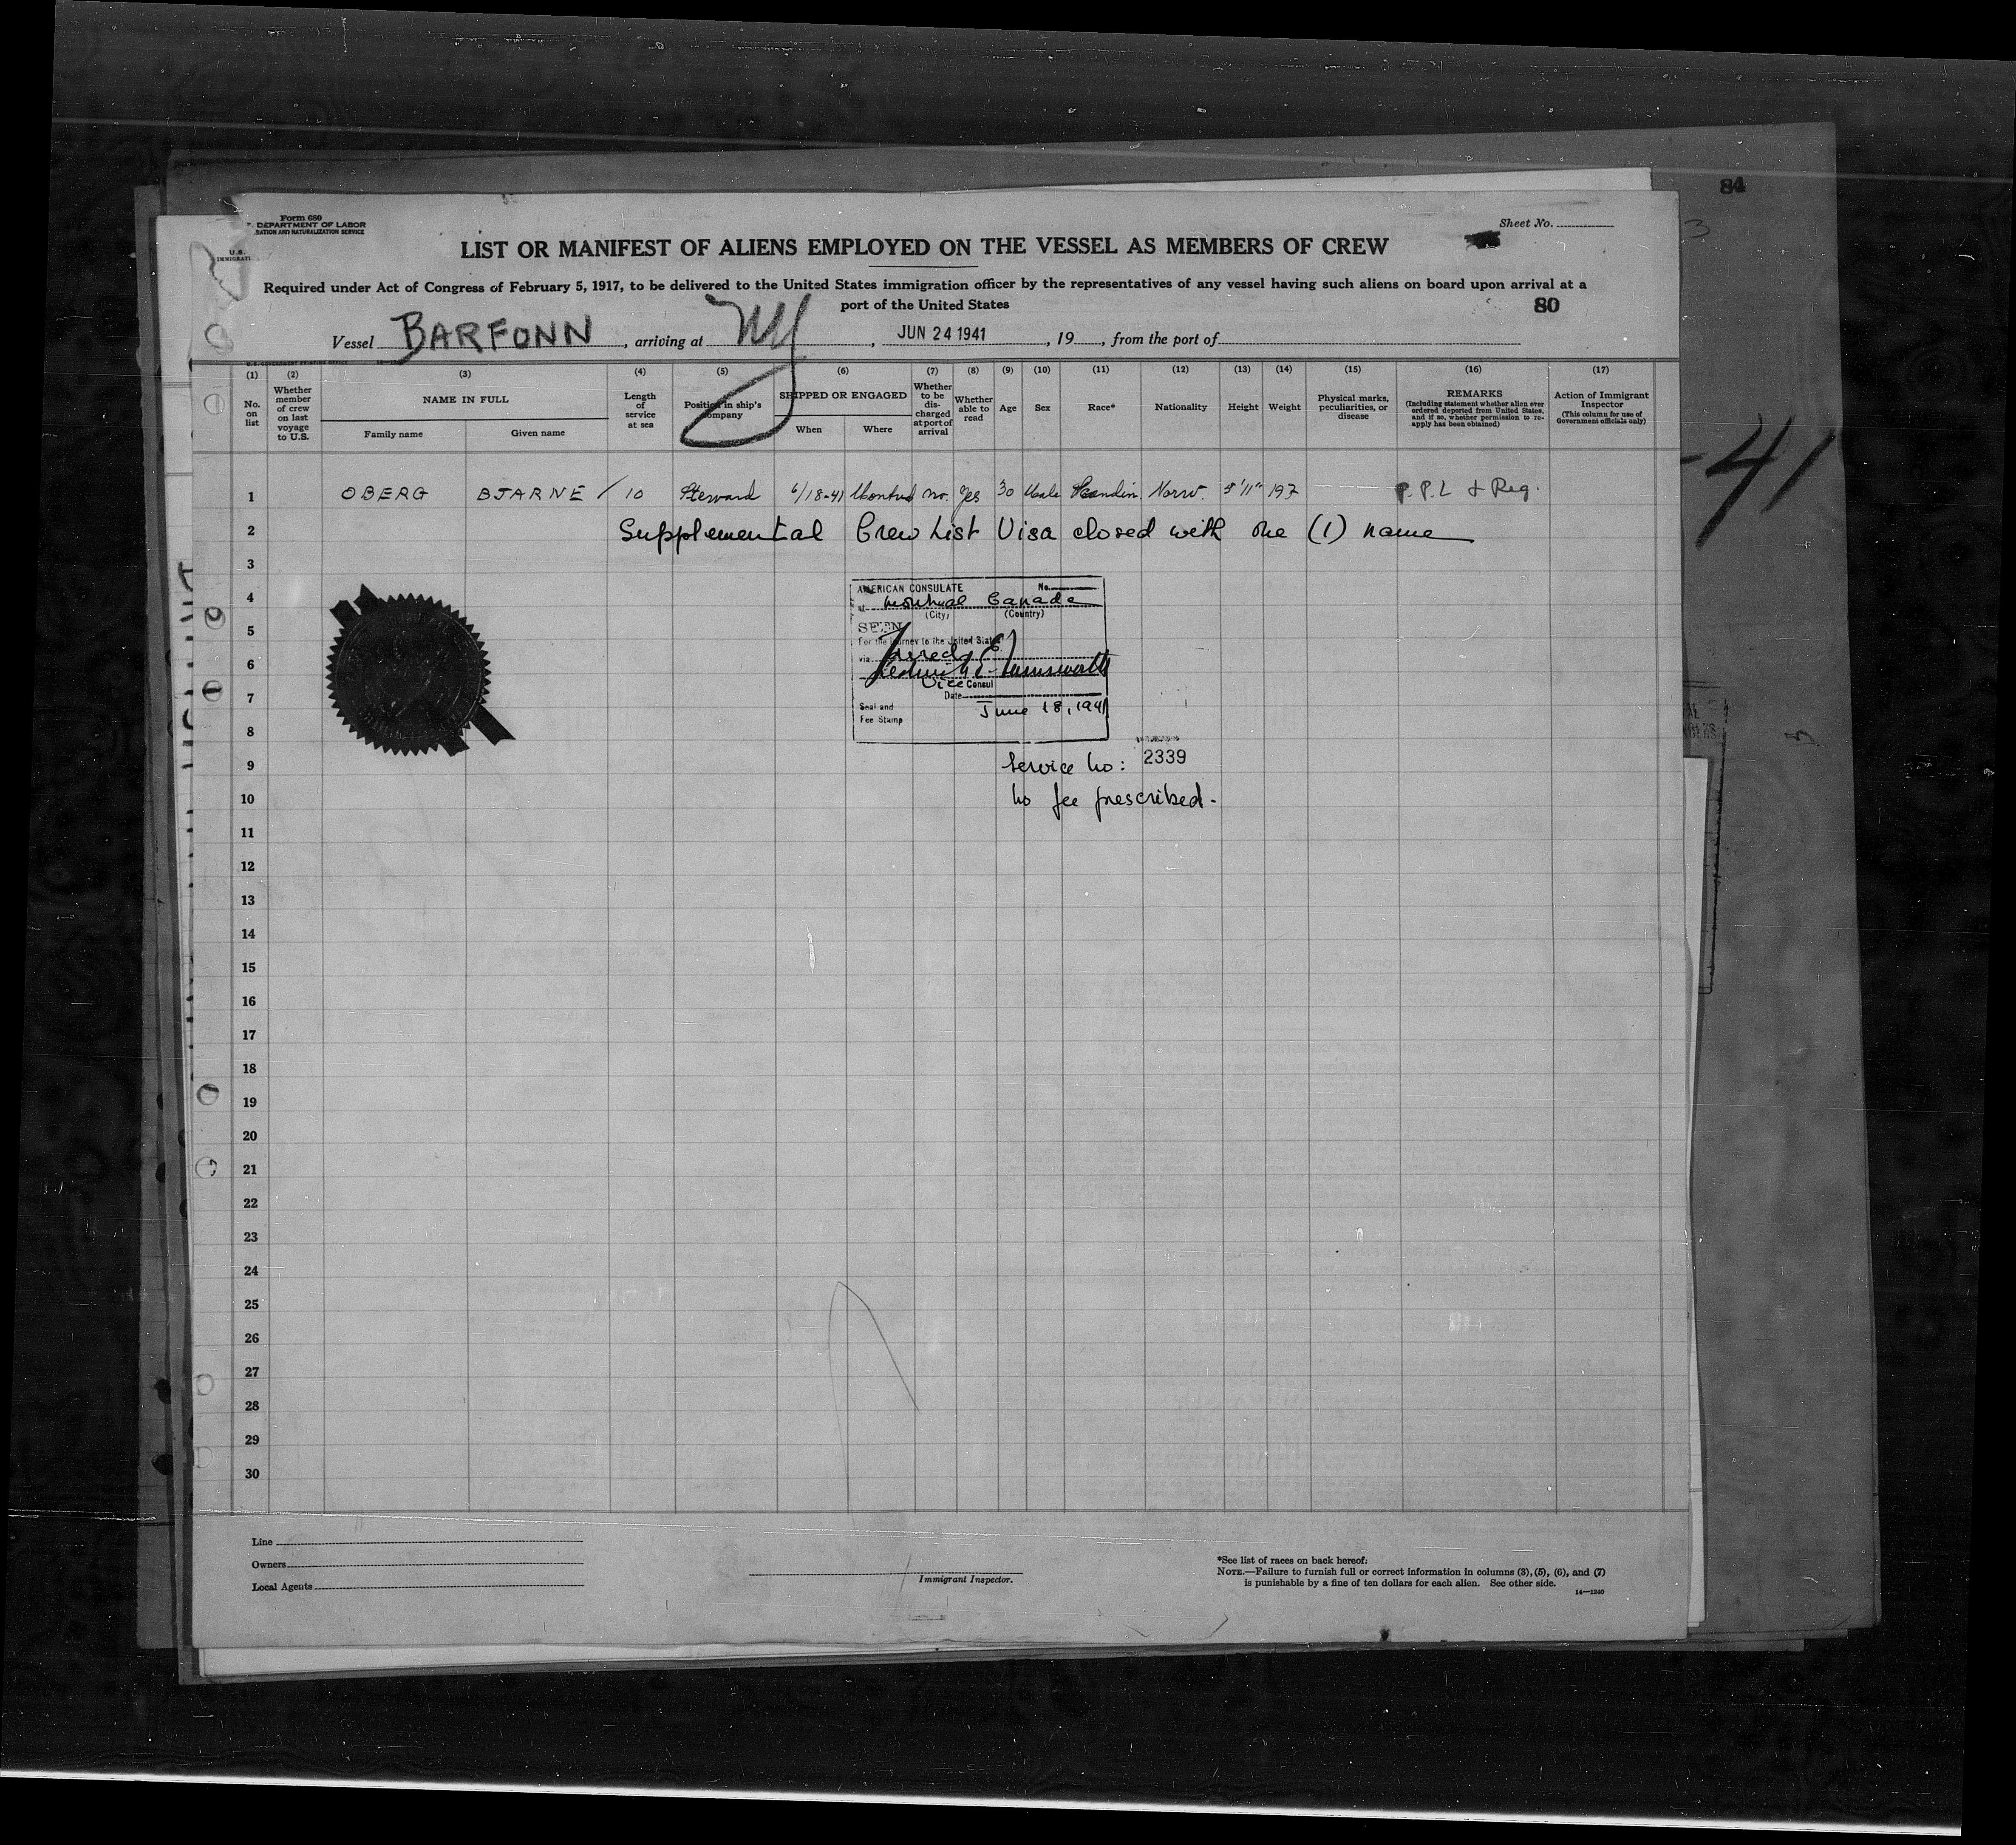 84
3
Form 680
DEPARTMENT OF LABOR
RATION AND NATURALIZATION SERVICE
U.S.
IMMIGRATI
Sheet No.
LIST OR MANIFEST OF ALIENS EMPLOYED ON THE VESSEL AS MEMBERS OF CREW
Required under Act of Congress of February 5, 1917, to be delivered to the United States immigration officer by the representatives of any vessel having such aliens on board upon arrival at a
port of the United States
80
Vessel BARFONN, arriving at NY, JUN 24 1941, 19, from the port of
(1) (2) (3) (4) (5) (6) (7) (8) (9) (10) (11) (12) (13) (14) (15) (16) (17)
No. on list
Whether member of crew on last voyage to U.S.
NAME IN FULL
Family name
Given name
Length of service at sea
Position in ship's company
SHIPPED OR ENGAGED
When
Where
Whether to be discharged at port of arrival
Whether able to read
Age
Sex
Race*
Nationality
Height
Weight
Physical marks, peculiarities, or disease
REMARKS
(Including statement whether alien ever ordered deported from United States, and if so, whether permission to re-apply has been obtained)
Action of Immigrant Inspector
(This column for use of Government officials only)
-41
1 OBERG BJARNE / 10 Steward 6/18-41 Montreal no. Yes 30 Male Scandin. Norw. 5'11" 197 P.P.L & Reg.
2 Supplemental Crew List Visa closed with one (1) name
3
4
5
6
7
8
9
10
11
12
13
14
15
16
17
18
19
20
21
22
23
24
25
26
27
28
29
30
AMERICAN CONSULATE No.
at Montreal Canada
(City) (Country)
SEEN
For the journey to the United States
via
Vice Consul
Date
June 18, 1941
Seal and
Fee Stamp
Service No: 2339
No fee prescribed.
Line
Owners
Local Agents
Immigrant Inspector.
*See list of races on back hereof.
NOTE.—Failure to furnish full or correct information in columns (3), (5), (6), and (7)
is punishable by a fine of ten dollars for each alien. See other side.
14—1240